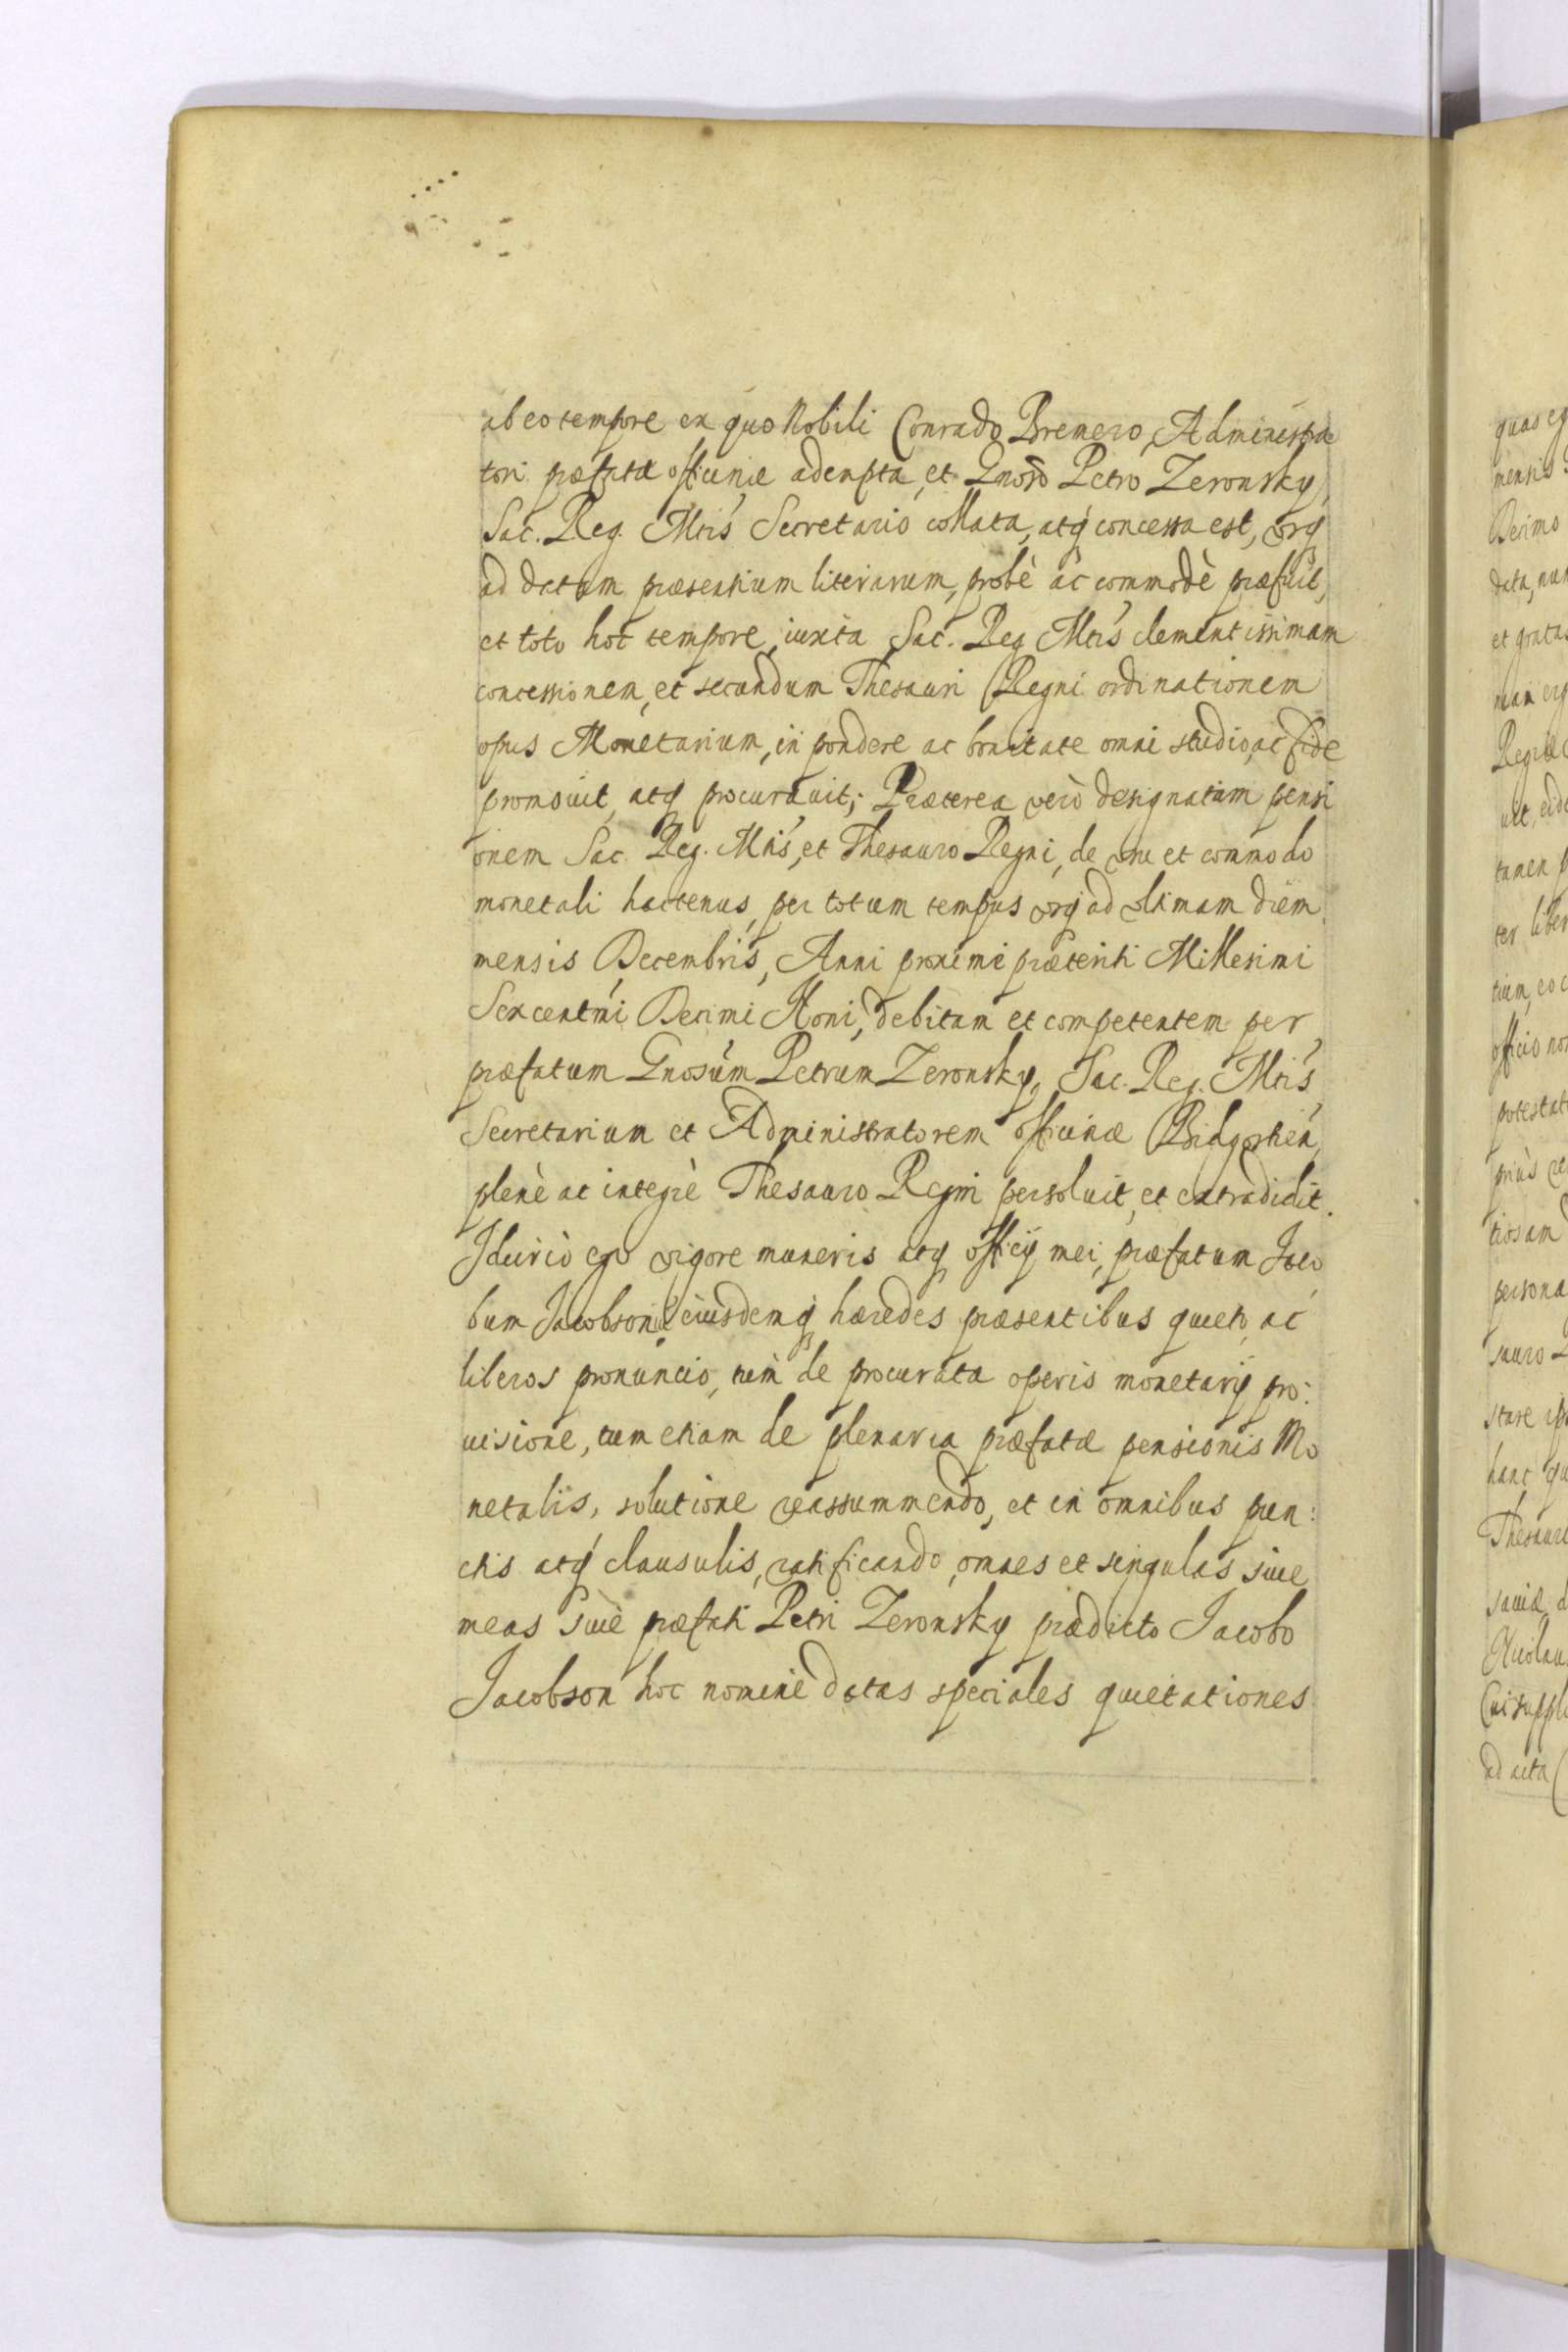 ab eo tempore ex quo Nobili Conrado Bremero Administra
tori præfatæ officinæ adempta, et Gnoso Petro Zeronsky,
Sac. Reg. Mtis Secretario collata, atq concessa est, usq
ad datum præsentium literarum, probè ac commodè præfuit,
et toto hoc tempore, iuxta Sac. Reg Mtis clementissimam
concessionem, et secundum Thesauri Regni ordinationem
opus Monetarium, in pondere ac bonitate omni studio, ac fide
promouit, atq procurauit; Præterea verò designatam pensi
onem Sac. Reg. Mtis, et Thesauro Regni, de usu et commodo
monetali hactenus, per totum tempus usq ad ultimam diem
mensis Decembris, Anni proximi præteriti Millesimi
Sexcentmi Decimi Noni, debitam et competentem per
præfatum Gnosum Petrum Zeronsky, Sac. Reg. Mtis
Secretarium et Administratorem officinæ Bidgostien
plenè ac integrè Thesauro Regni persoluit, et extradidit.
Idcircò ego vigore muneris atq officij mei, præfatum Jaco
bum Jacobson, eiusdemq hæredes præsentibus quietos ac
liberos pronuncio, tum de procurata operis monetarij pro:
uisione, tum etiam de plenaria præfatæ pensionis Mo
netalis, solutione reassummendo, et in omnibus pun:
ctis atq clausulis, ratificando, omnes et singulas siue
meas siue præfati Petri Zeronsky prædicto Jacobo
Jacobson hoc nomine datas speciales quietationes
quas
mensis
Decimo
data, nun
et gratas
tamen
ter liber
officio non
potestat
persona
sauro
stare
hanc
Thesaur
Nicolau
ad acta